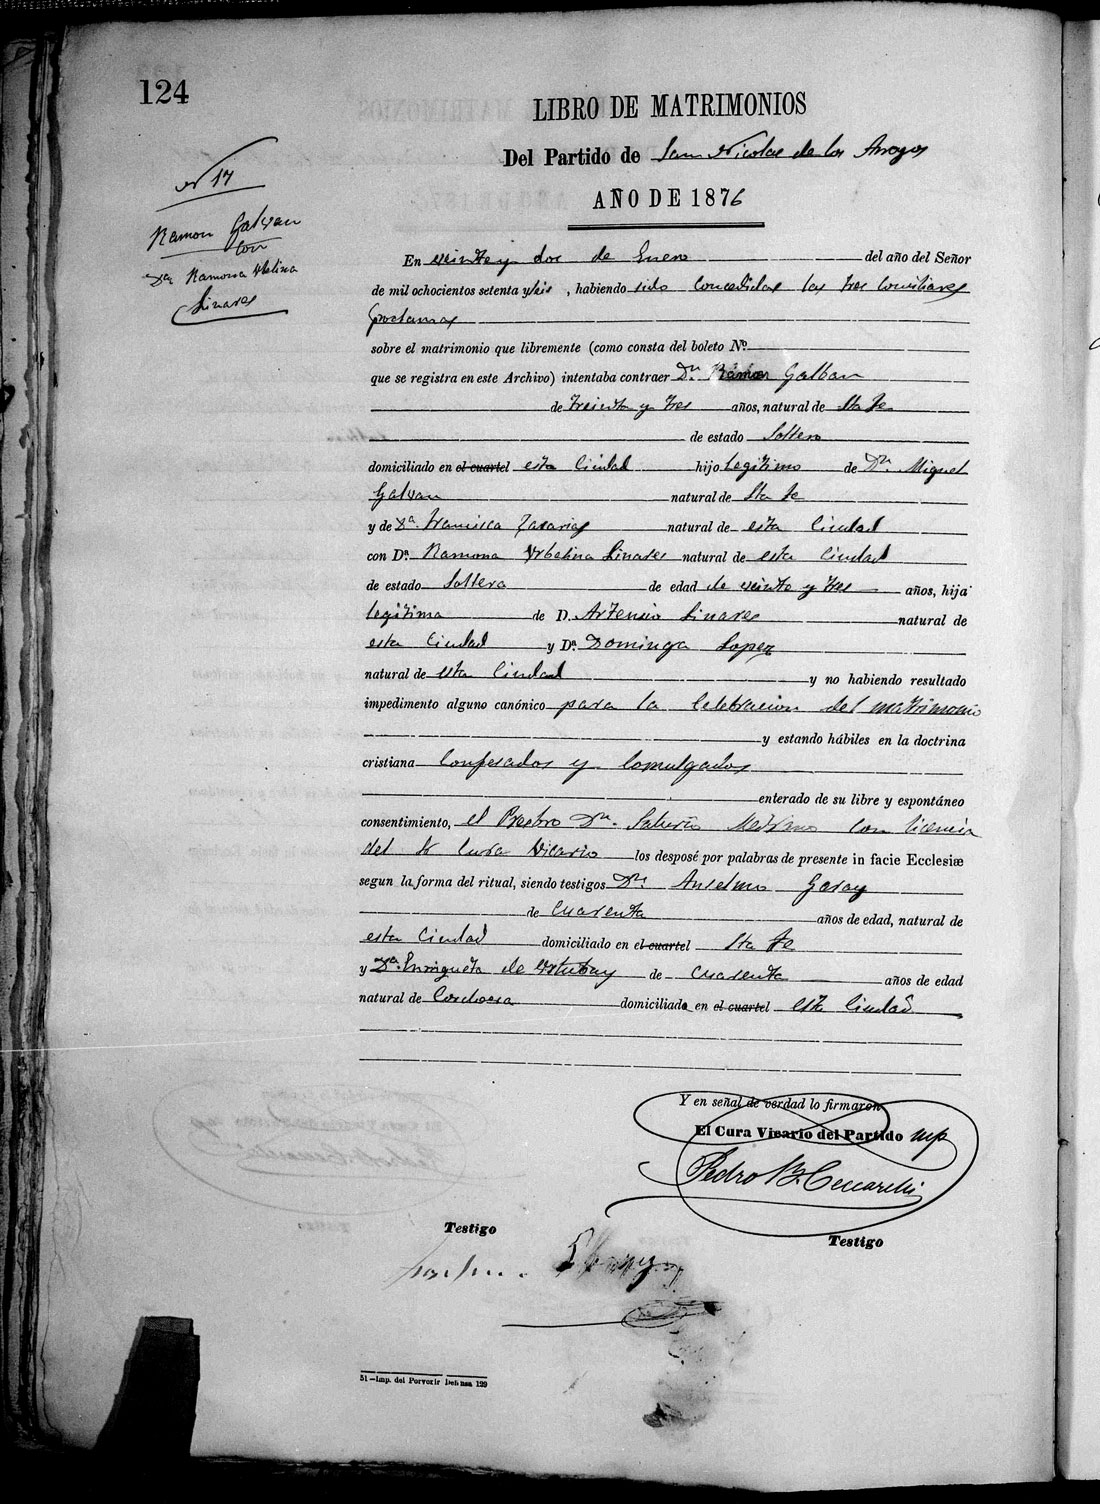 124
LIBRO DE MATRIMONIOS
Del Partido de San Nicolas de los Arroyos
AÑO DE 1876
Nº 17
Ramon Galvan
con
Dª Ramona Urbelina
Linares
En veinte y dos de Enero del año del Señor
de mil ochocientos setenta y seis, habiendo sido concedidas las tres conciliares
proclamas
sobre el matrimonio que libremente (como consta del boleto Nº.
que se registra en este Archivo) intentaba contraer Dn. Ramon Galban
de treinta y tres años, natural de Sta Fe
de estado Soltero
domiciliado en el cuartel esta Ciudad hijo legitimo de Dn. Miguel
Galvan natural de Sta Fe
y de Dª. Francisca Zacarias natural de esta Ciudad
con Dª. Ramona Urbelina Linares natural de esta Ciudad
de estado Soltera de edad de veinte y tres años, hija
legitima de D. Artensio Linares natural de
esta Ciudad y Dª. Dominga Lopez
natural de esta Ciudad y no habiendo resultado
impedimento alguno canónico para la celebracion del matrimonio
y estando hábiles en la doctrina
cristiana confesados y comulgados
enterado de su libre y espontáneo
consentimiento, el Presbro Dn. Medrano con licencia
del Sr Cura Vicario los desposé por palabras de presente in facie Ecclesiæ
segun la forma del ritual, siendo testigos Dn. Anselmo Garay
de cuarenta años de edad, natural de
esta Ciudad domiciliado en el cuartel Sta Fe
y Dª. Enriqueta de de cuarenta años de edad
natural de Cordova domiciliada en el cuartel esta Ciudad
Y en señal de verdad lo firmaron
El Cura Vicario del Partido mp
Pedro B. Ceccarelli
Testigo Testigo
51—Imp. del Porvenir Defensa 129